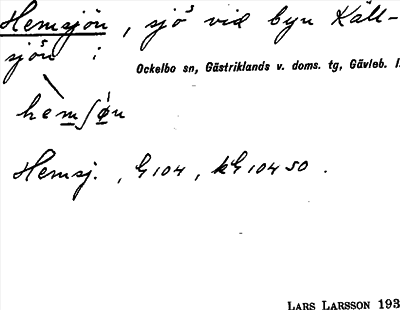 Hemsjön, sjö vid byn Käll-
sjön i
Ockelbo sn, Gästriklands v. doms. tg, Gävleb. l.
hemʃøn
Hemsj., G104, kG10450.
LARS LARSSON 193